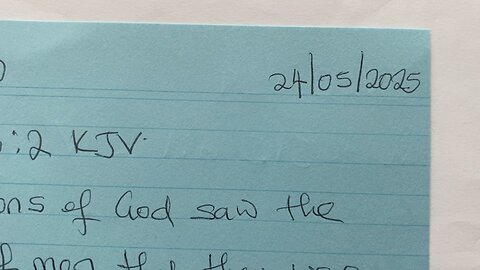 24/05/2025
:2 KJV.
ons of God saw the